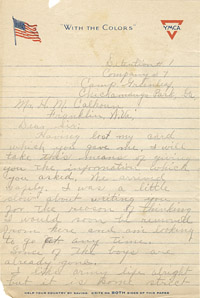 "WITH THE COLORS"
YMCA
Detention
Company # 1
Camp Greenleaf
Chickamauga Park, Ga
Mr. H. M. Calhoun
Franklin, W. Va.
Dear Sir:
Having lost my card
which you gave me, I will
take this means of giving
you the information which
you asked
I was a little
slow about writing you
for the reason of thinking
I would soon be
from here and am looking
to go at any time.
of the boys are
already gone.
I like army life alright
but it is some strict
HELP YOUR COUNTRY BY SAVING. WRITE ON BOTH SIDES OF THIS PAPER